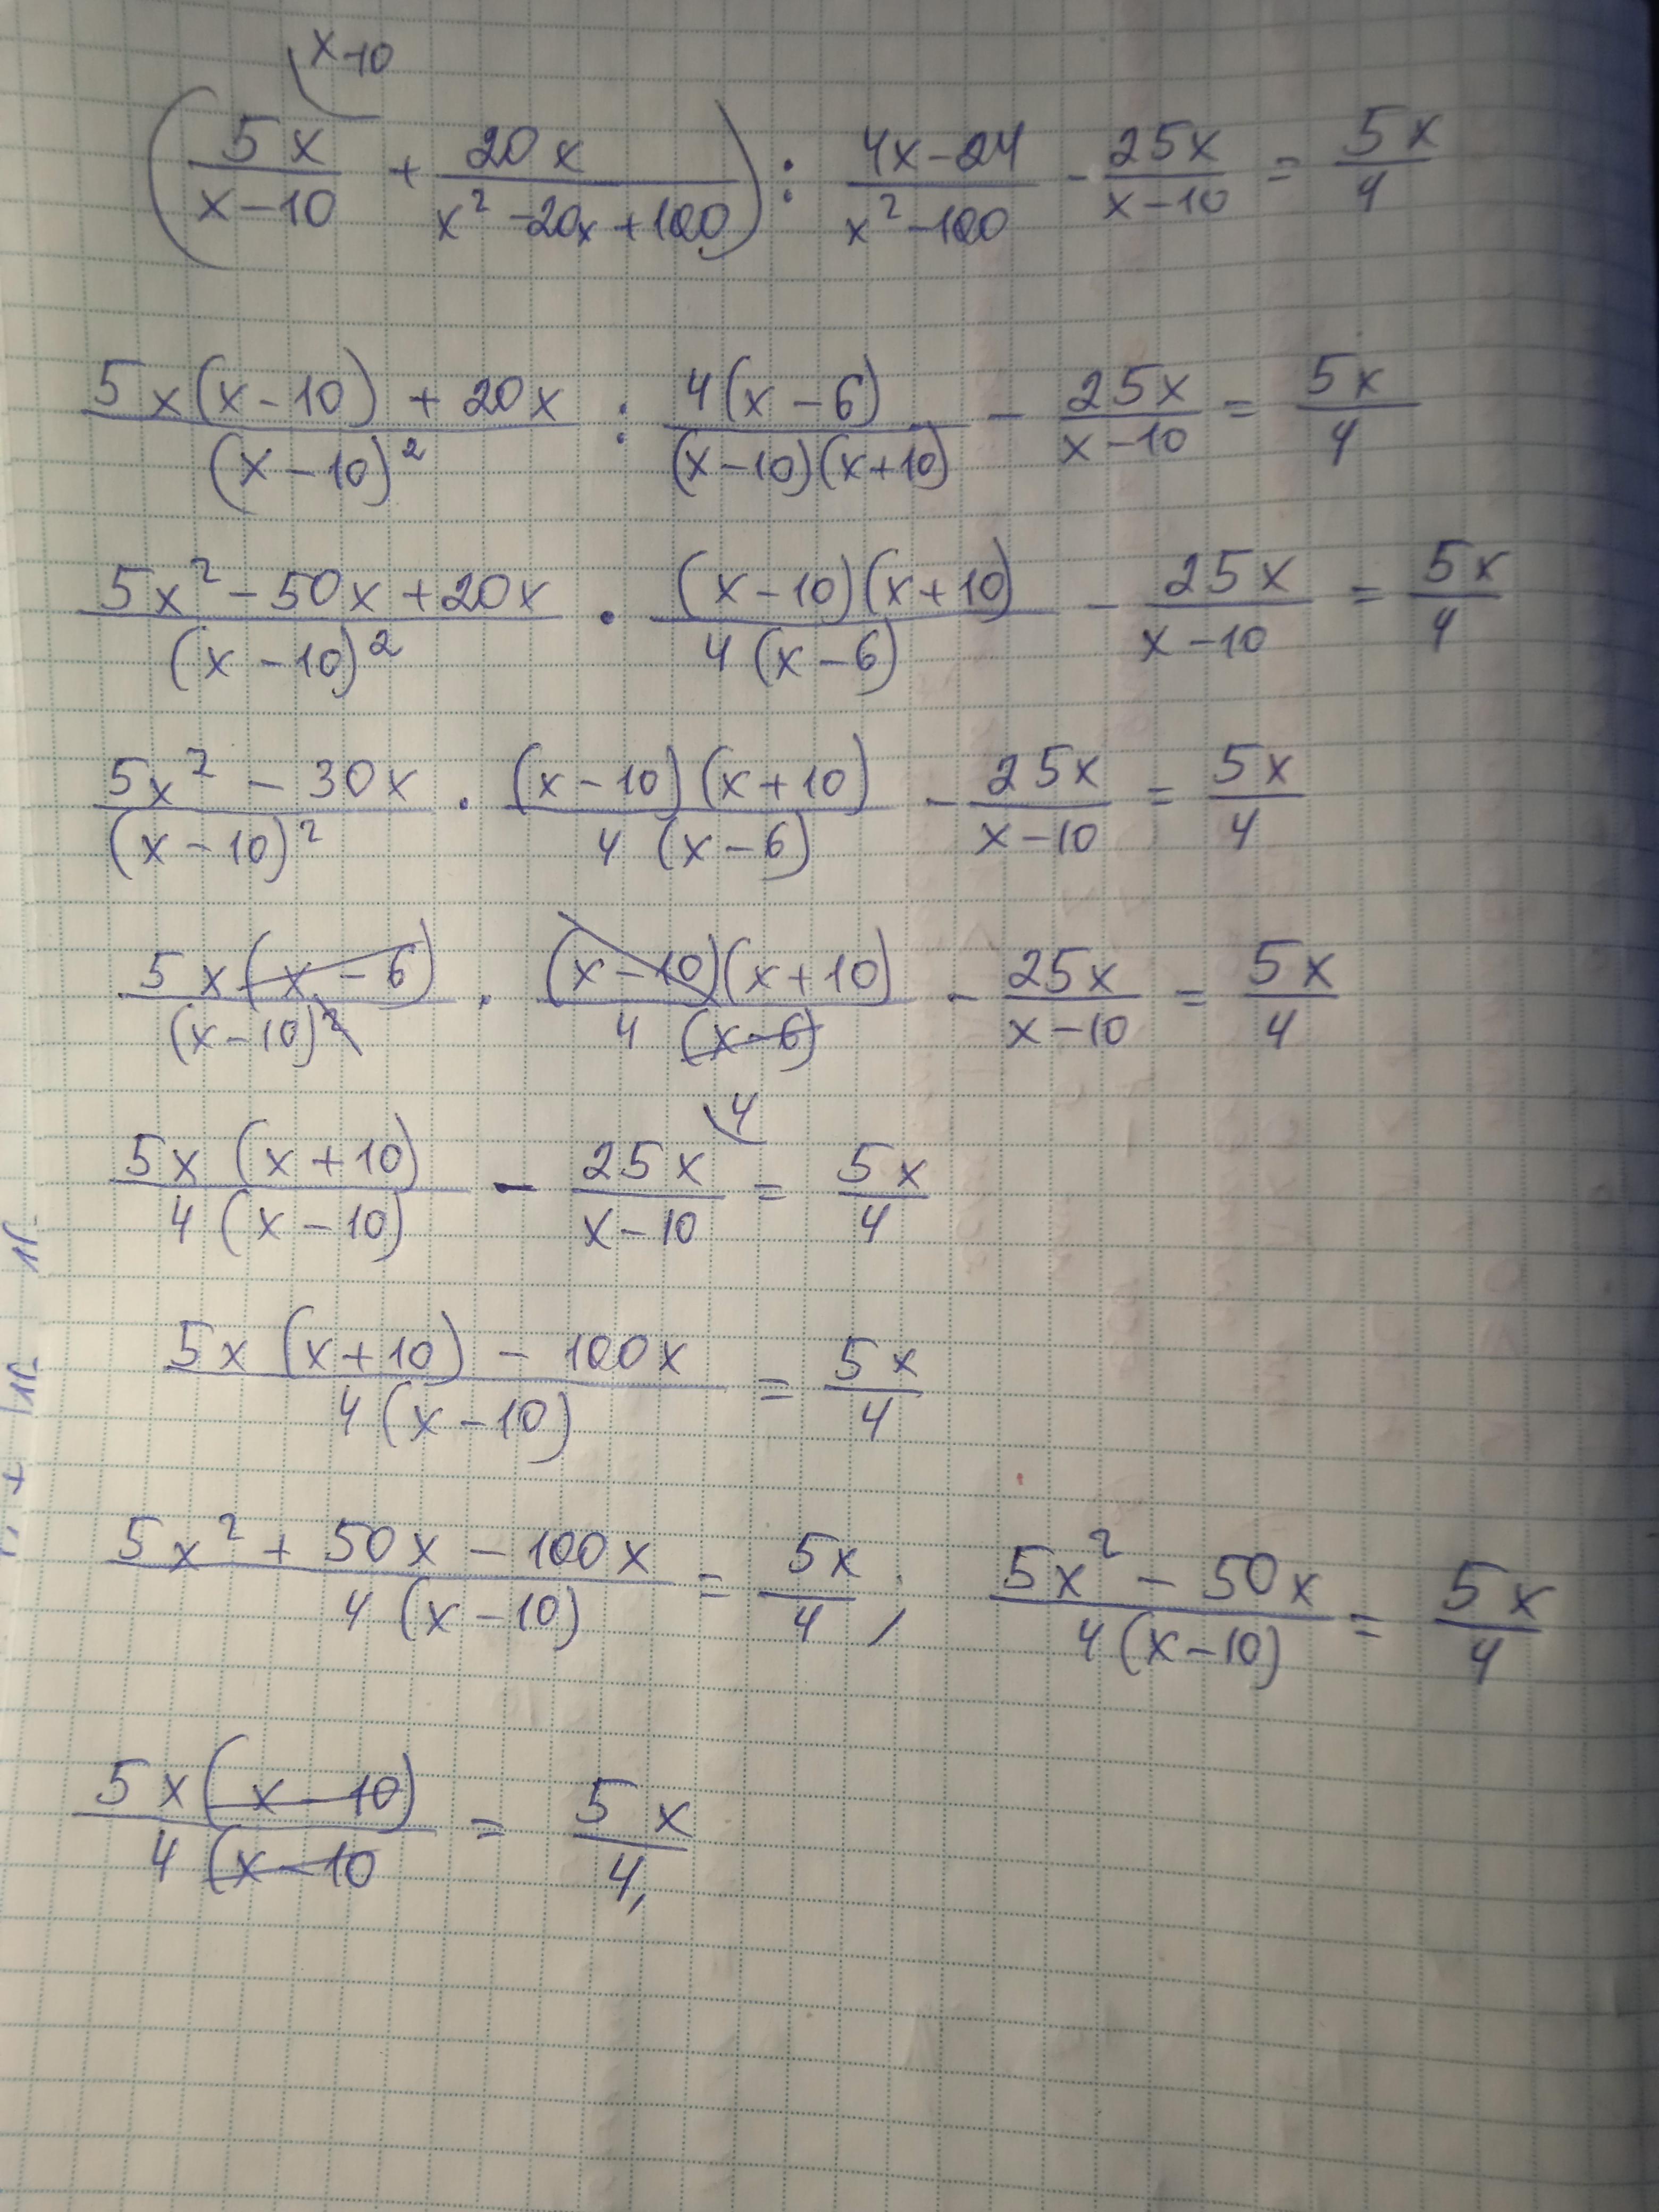 x-10
(5x/(x-10) + 20x/(x²-20x+100)) : (4x-24)/(x²-100) - 25x/(x-10) = 5x/4
(5x(x-10)+20x)/(x-10)² : 4(x-6)/((x-10)(x+10)) - 25x/(x-10) = 5x/4
(5x²-50x+20x)/(x-10)² · (x-10)(x+10)/(4(x-6)) - 25x/(x-10) = 5x/4
(5x²-30x)/(x-10)² · (x-10)(x+10)/(4(x-6)) - 25x/(x-10) = 5x/4
5x(x-6)/(x-10)² · (x-10)(x+10)/(4(x-6)) - 25x/(x-10) = 5x/4
4
5x(x+10)/(4(x-10)) - 25x/(x-10) = 5x/4
(5x(x+10)-100x)/(4(x-10)) = 5x/4
(5x²+50x-100x)/(4(x-10)) = 5x/4, (5x²-50x)/(4(x-10)) = 5x/4
5x(x-10)/(4(x-10) = 5x/4,